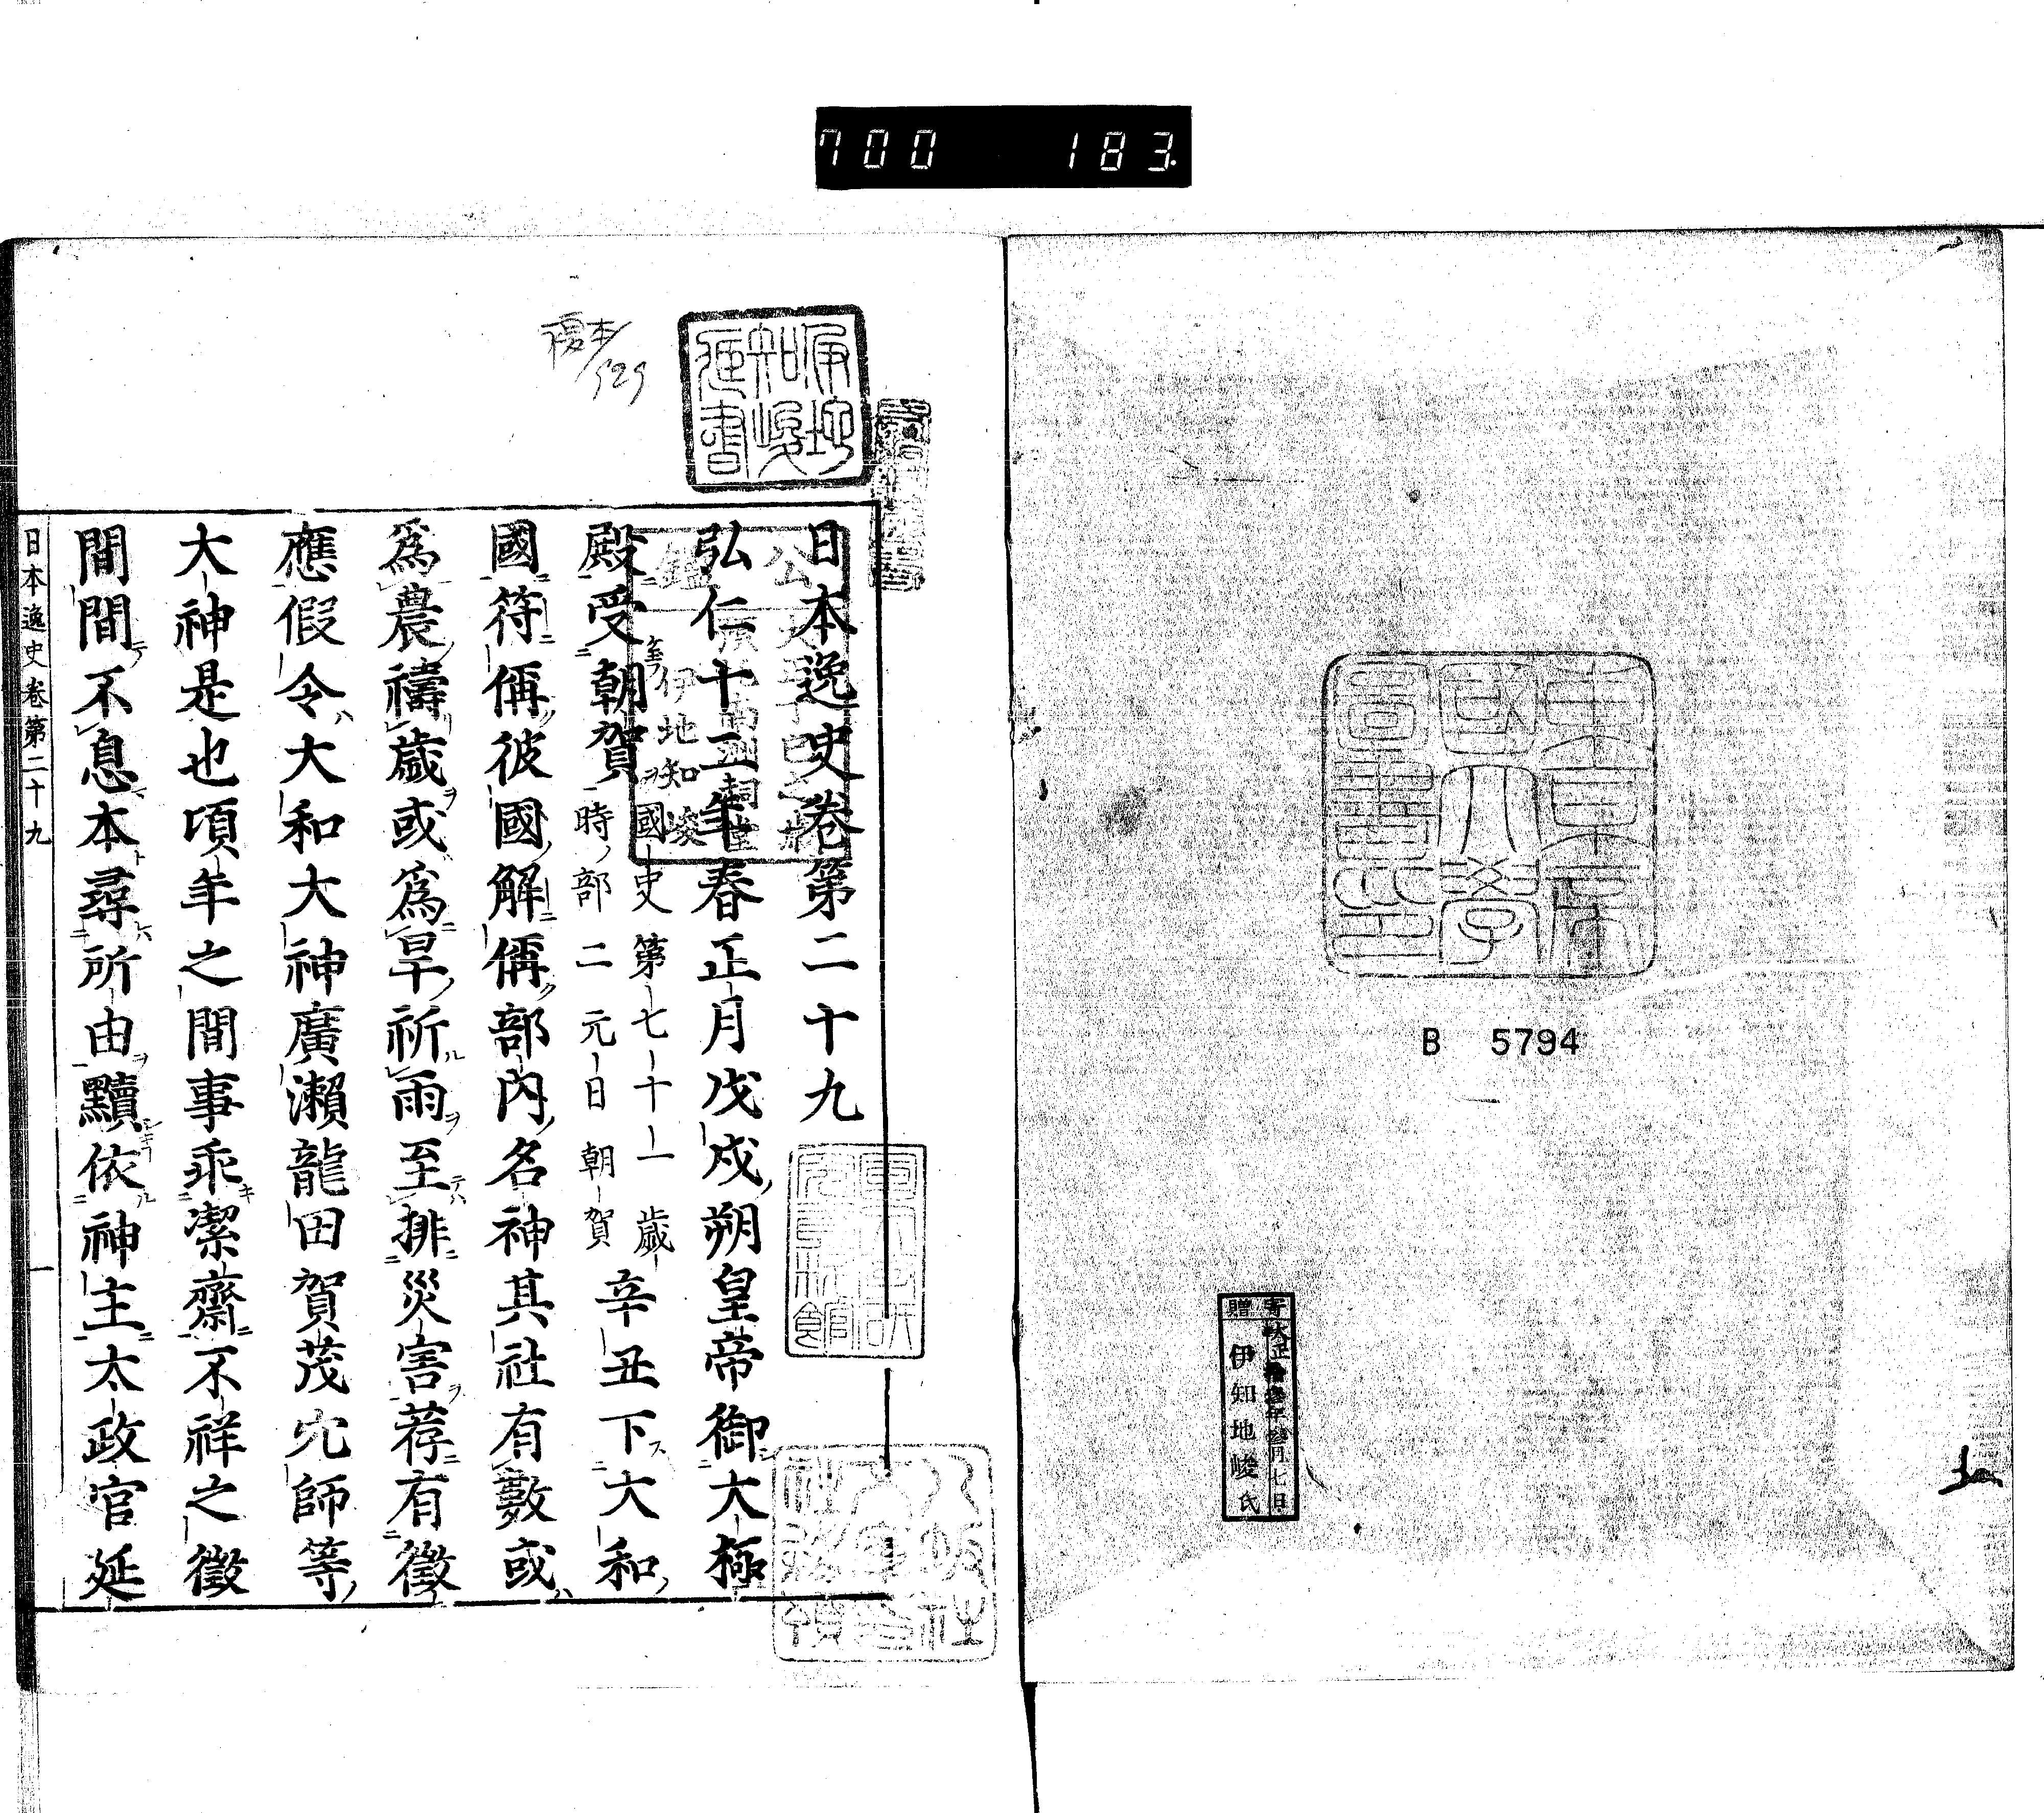 700 183
東京帝
國大學
圖書印
B 5794
寄贈
大正 年 月七日
伊知地峻氏
複本
伊地
知峻
藏書
伊地知峻
日本逸史卷第二十九
弘仁十二年春正月戊戌朔皇帝御大極
殿受朝賀國史第七十一歲時部二元日朝賀辛丑下大和
國符偁彼國解偁部內名神其社有數或
爲農禱歲或爲旱祈雨至排災害荐有徵
應假令大和大神廣瀨龍田賀茂穴師等
大神是也頃年之間事乖潔齋不祥之徵
間間不息本尋所由黷依神主太政官延
日本逸史卷第二十九
一